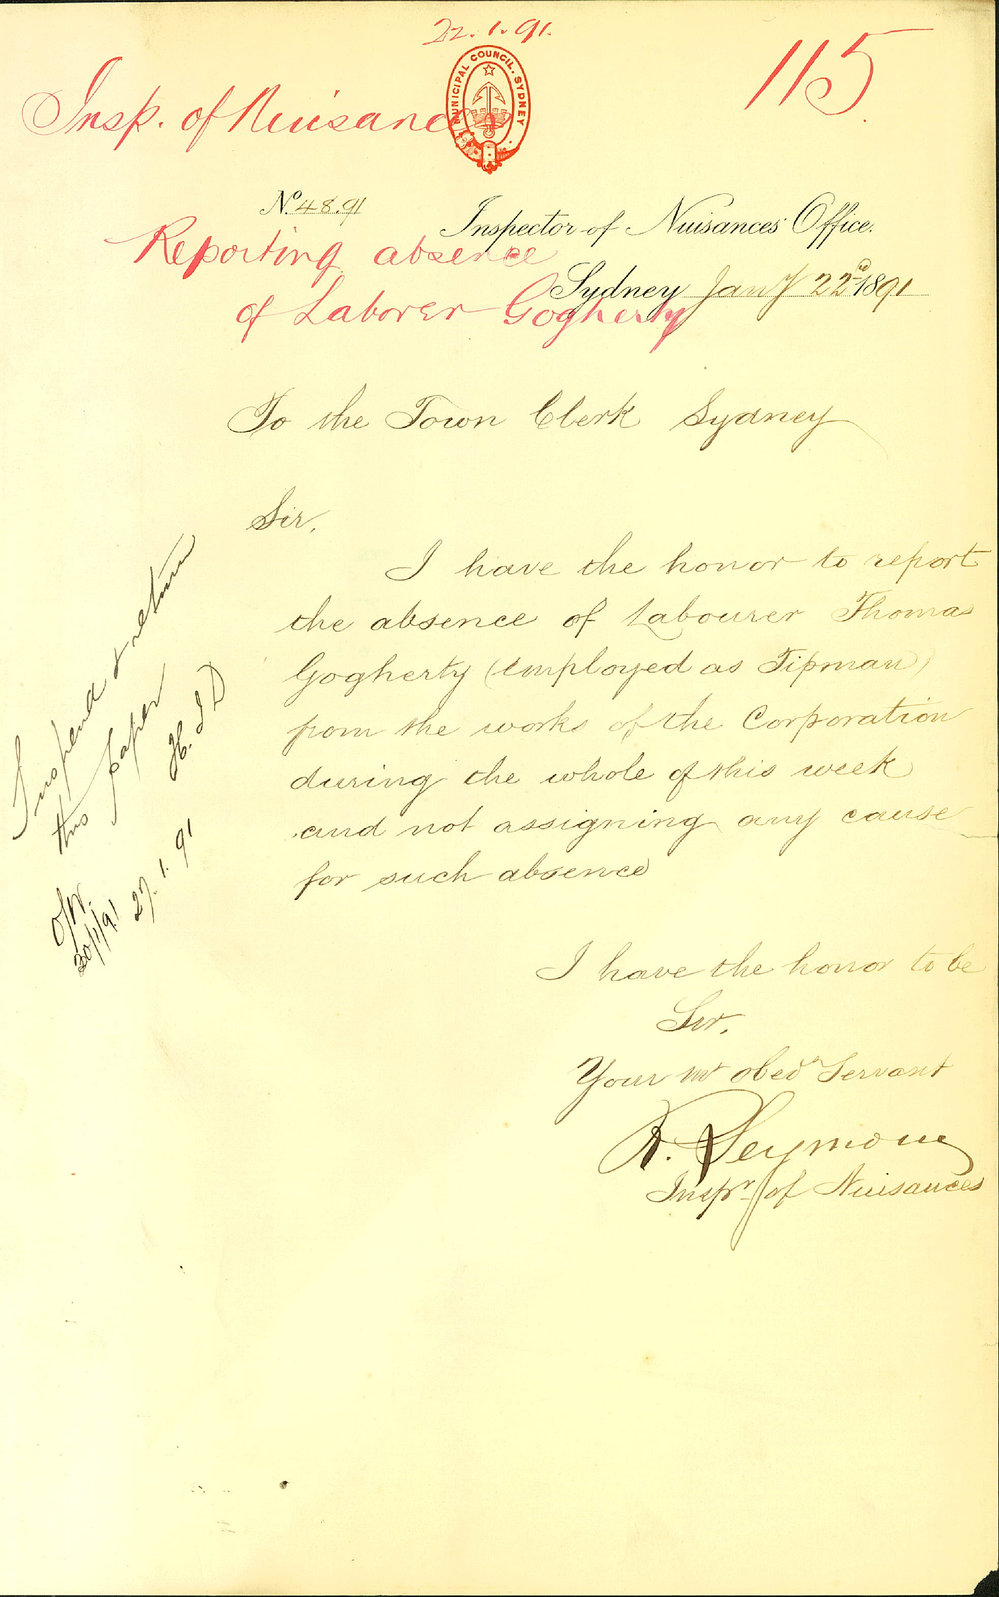 22.1.91.
115
Insp. of Nuisances
MUNICIPAL COUNCIL. SYDNEY
No. 48.91
Inspector of Nuisances Office.
Reporting absence
of Laborer Gogherty
Sydney Jany 22nd 1891
To the Town Clerk Sydney
Sir,
I have the honor to report
the absence of Labourer Thomas
Gogherty (employed as Tipman)
from the works of the Corporation
during the whole of this week
and not assigning any cause
for such absence
I have the honor to be
Sir,
Your mt obedt Servant
R. Seymour
Inspr. of Nuisances
Suspend & return
this paper
H. J D
27.1.91
O/W.
30/1/91